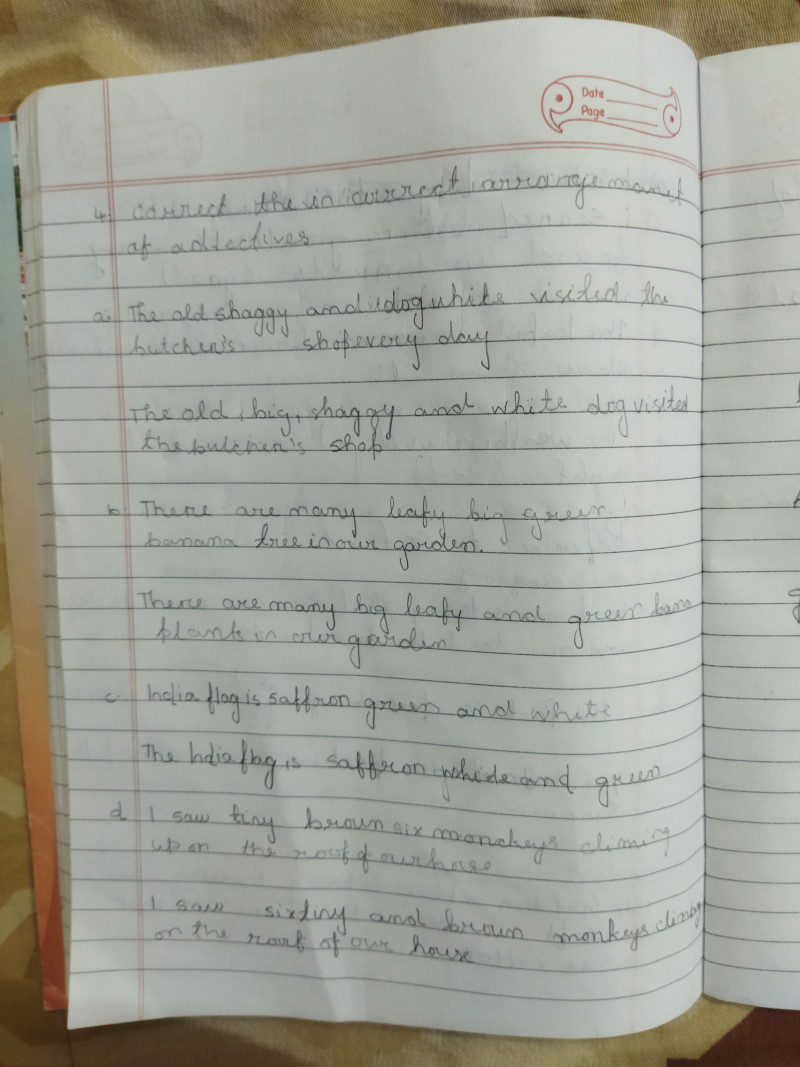 Date
Page
4. correct the in correct arrangemanet
of adjectives
a. The old shaggy and dog white visited the
butcher's shop every day
The old, big, shaggy and white dog visited
the butcher's shop
b. There are many leafy big green
banana tree in our garden.
There are many big leafy and green bana
plants in our garden
c. India flag is saffron green and white
The India flag is saffron white and green
d. I saw tiny brown six monkeys climing
up on the roof of our house
I saw six tiny and brown monkeys climing
on the roof of our house